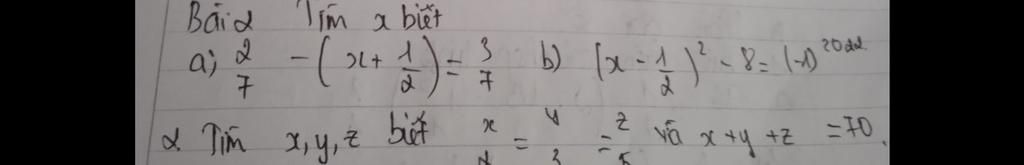 Bài 2 Tìm x biết
a; 2/7 - (x + 1/2) = 3/7 b) (x - 1/2)² - 8 = (-1)²⁰²²
2 Tìm x, y, z biết x/2 = y/3 = z/5 và x + y + z = 70.